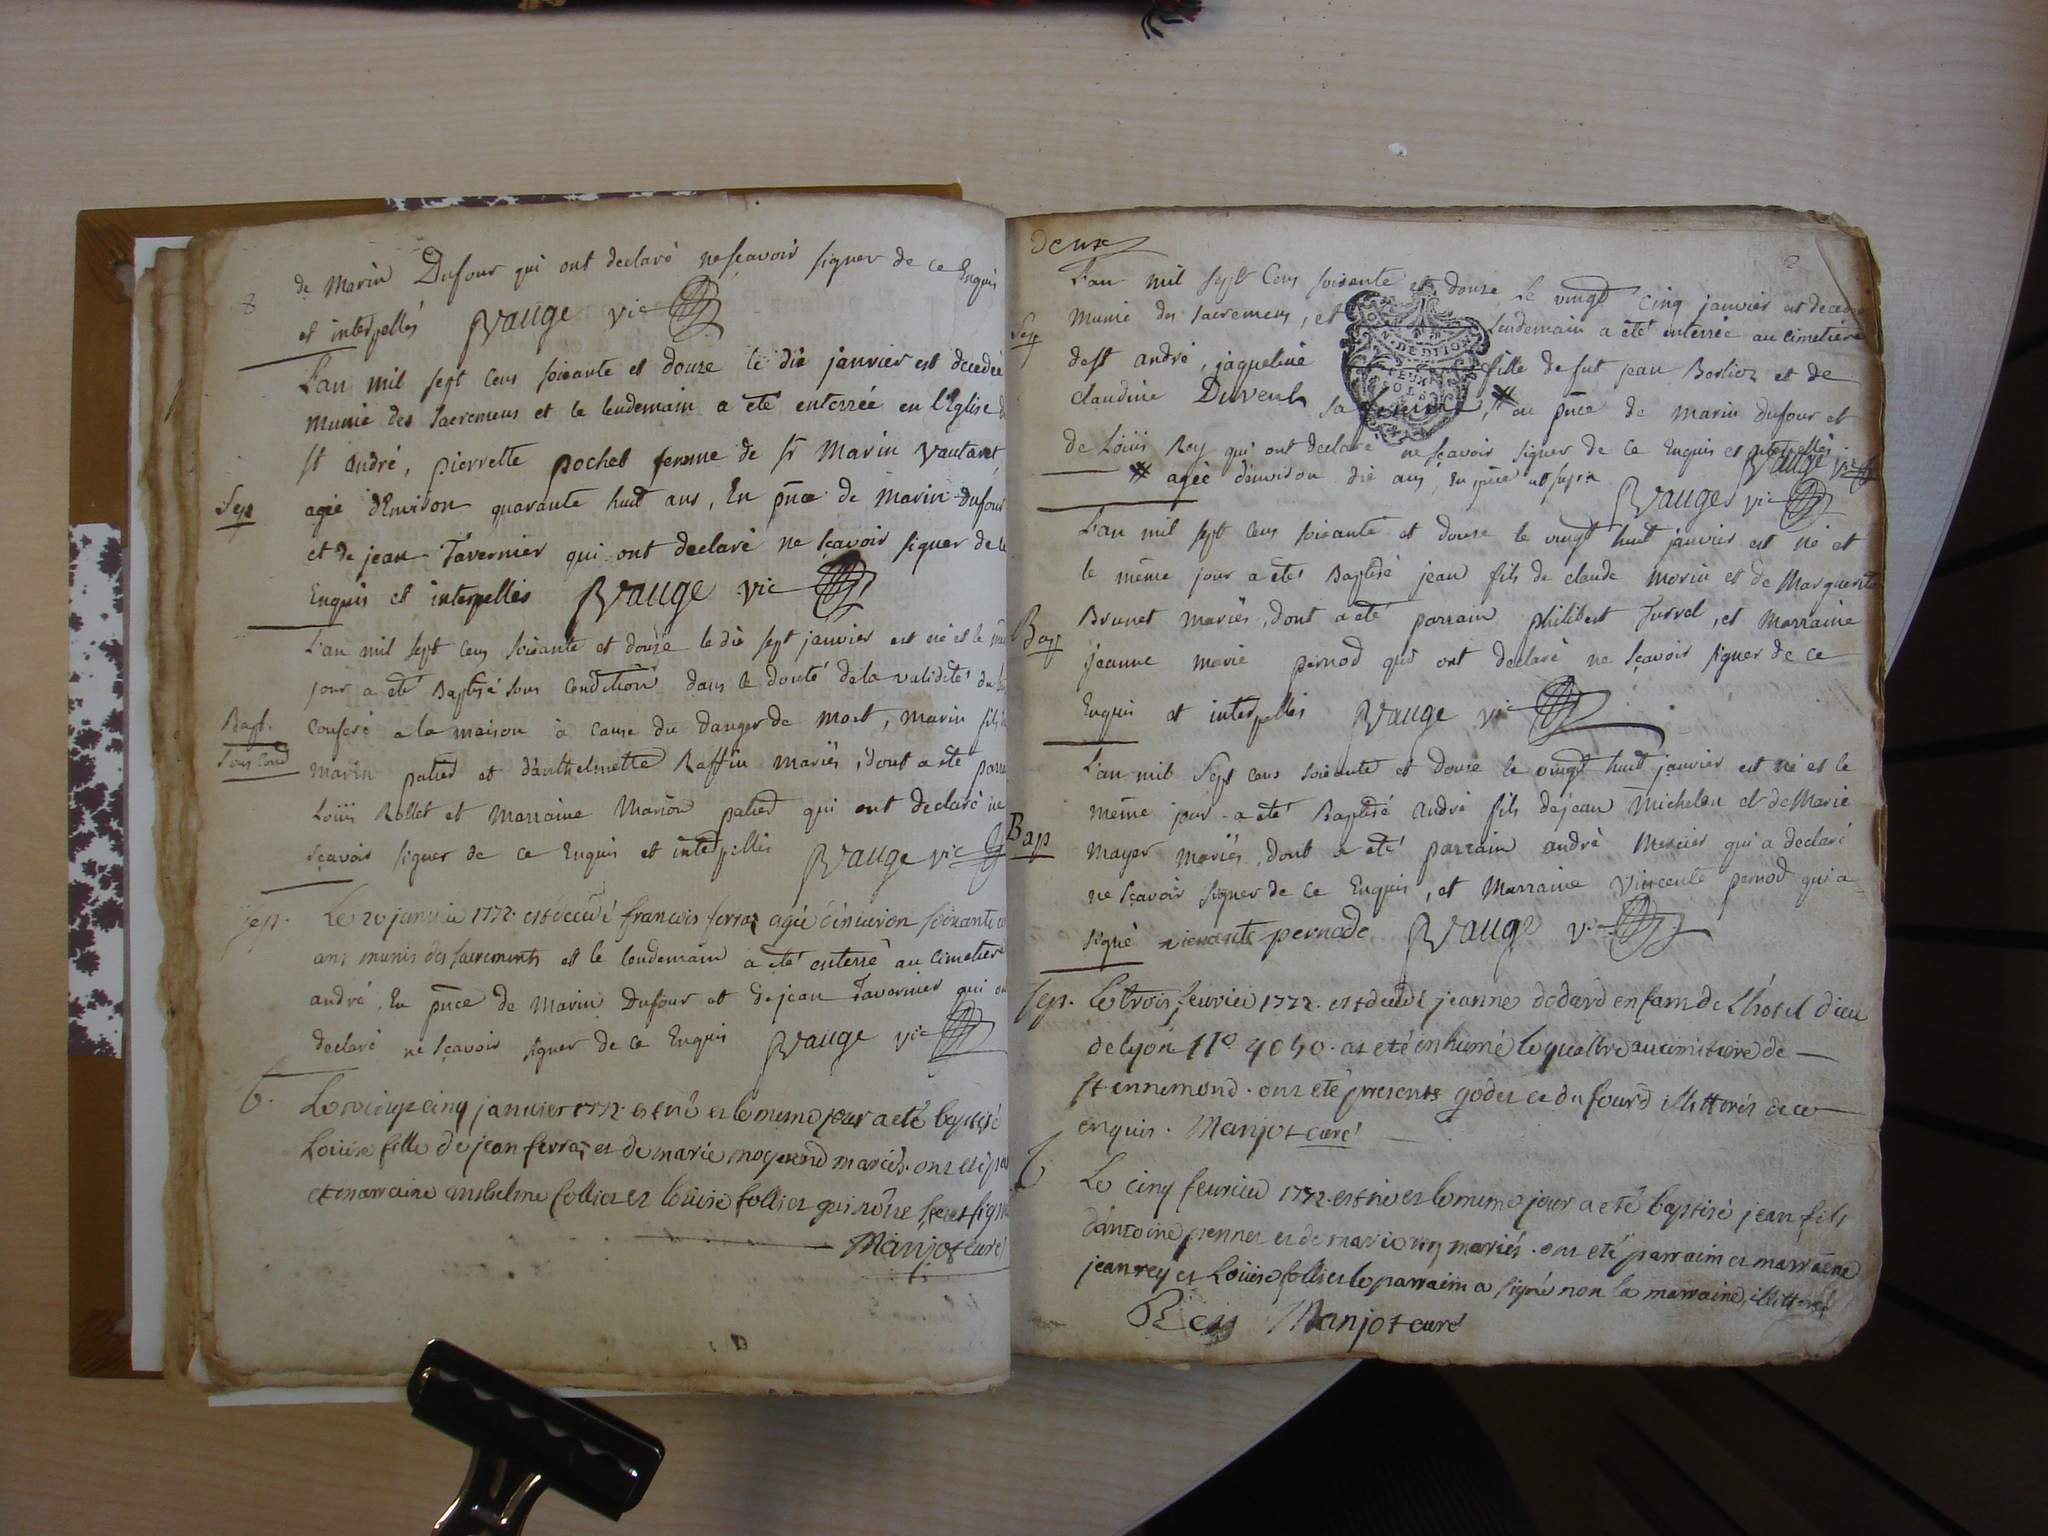 8
de Marin Dufour qui ont declaré ne scavoir signer de ce Enquis
et interpellés Vauge vic
L'an mil sept cens soixante et douze le dix janvier est decedée
munie des sacremens et le lendemain a eté enterrée en l'Eglise de
st andré, pierrette pochet femme de sr Marin Vautaret
Sep
agée d'Environ quarante huit ans, En pnce de Marin Dufour
et de jean Tavernier qui ont declaré ne scavoir signer de ce
Enquis et interpellés Vauge vic
L'an mil sept cens soixante et douze le dix sept janvier est né et le même
jour a eté Baptisé sous condition dans le doute de la validité du
Bapt.
sous cond
conferé a la maison à cause du danger de mort, Marin fils
marin palied et d'anthelmette Raffin mariés, dont a eté
Loüis Rollet et marraine Marion palied qui ont declaré ne
sçavoir signer de ce Enquis et interpellés Vauge vic
sep. Le 20 janvier 1772. est decedé francois ferraz agée d'environ soixante
ans munis des sacrements et le lendemain a eté enterré au cimetiere
andré, En pnce de Marin Dufour et de jean Tavernier qui
declaré ne sçavoir signer de ce Enquis Vauge vic
b. Le vingt cinq janvier 1772. est né et le meme jour a eté baptisé
Loüise fille de jean ferraz et de marie moyrend mariés. ont eté
et marraine anthelme follies et loüise follies qui n'ont signé
Manjot curé
deux
2
L'an mil sept Cens soixante et douze le vingt cinq janvier est decedée
Sep
munie des sacremens, et lendemain a eté enterrée au cimetiere
de st andré, jaqueline fille de fut jean Berlioz et de
claudine Duvent sa femme, # en pnce de marin dufour et
de Loüis Rey qui ont declaré ne sçavoir signer de ce Enquis et interpellés. Vauge vic
# agée d'environ dix ans, En pnce ut supra Vauge vic
L'an mil sept cens soixante et douze le vingt huit janvier est né et
le même jour a eté Baptisé jean fils de claude morin et de Marguerite
Bap
Brunet mariés, dont a eté parrain philibert Turrel, et Marraine
jeanne marie pernod qui ont declaré ne sçavoir signer de ce
Enquis et interpellés Vauge vic
L'an mil Sept cens soixante et douze le vingt huit janvier est né et le
même jour a eté Baptisé andré fils de jean Michelon et de Marie
Bap
Mayer mariés, dont a eté parrain andré Mercier qui a declaré
ne sçavoir signer de ce Enquis, et Marraine Vincente pernod qui a
signé vincente pernode Vauge vic
sep. Le trois fevrier 1772. est decedé jeanne dedard enfant de L'hotel dieu
de lyon no 4040. at eté inhumé le quattre au cimitiere de
st ennemond. ont eté presents godet et dufourd illitterés de ce
enquis. Manjot curé
b
Le cinq fevrier 1772. est né et le meme jour a eté baptisé jean fils
d'antoine pennet et de marie rey mariés. ont eté parraim et marraine
jean rey et Loüise follies le parraim a signé non la marraine, illitteré
Rey Manjot curé